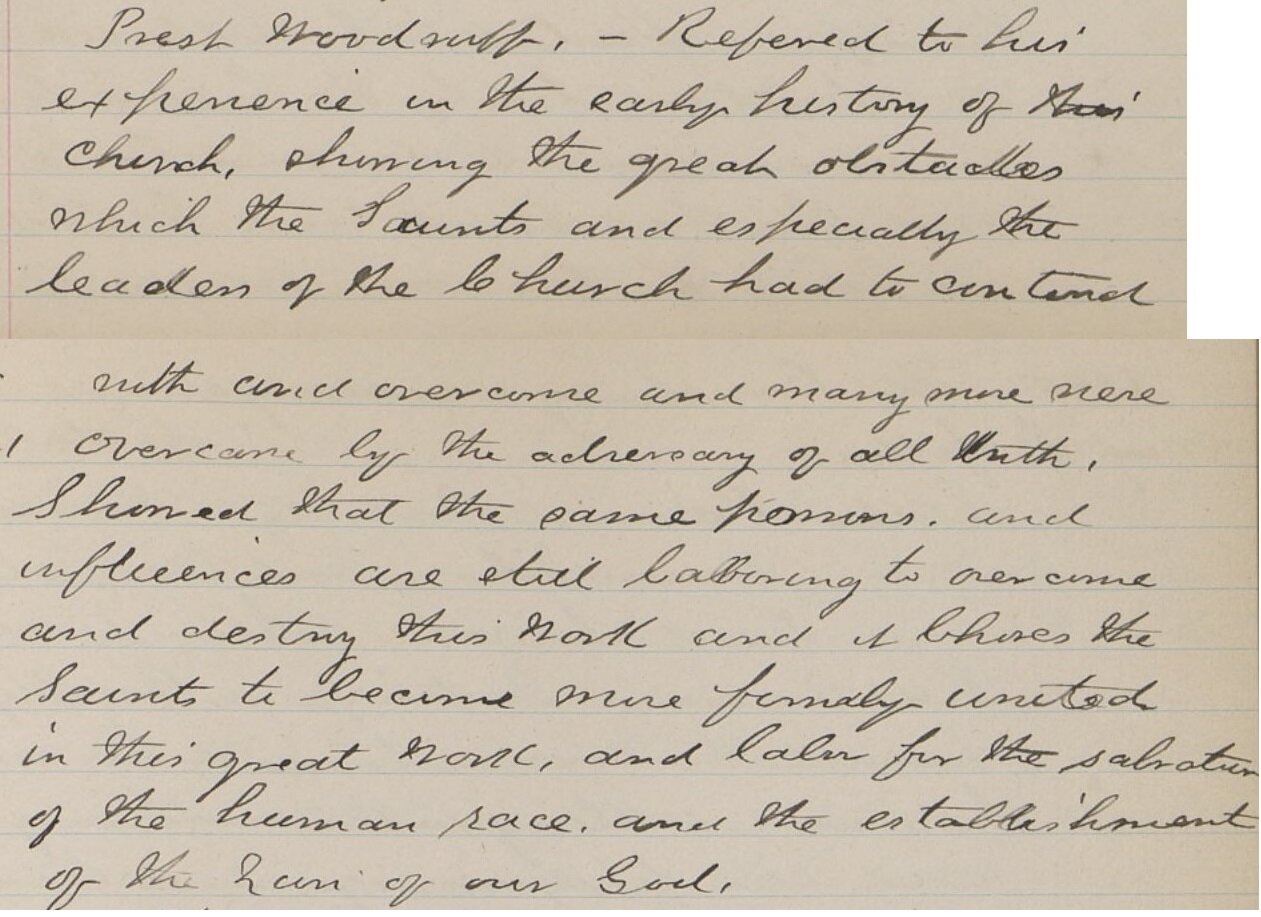 Prest Woodruff, - Refered to his
experience in the early history of this
church, showing the great obstacles
which the Saunts and especially the
leaders of the Church had to contend
with and overcome and many more were
overcame by the adversary of all truth,
Showed that the same powers. and
influences are still laboring to overcome
and destroy this Work and it bhoves the
Saints to become more firmly united
in this great Work, and labor for the salvation
of the human race. and the establishment
of the Zion of our God.